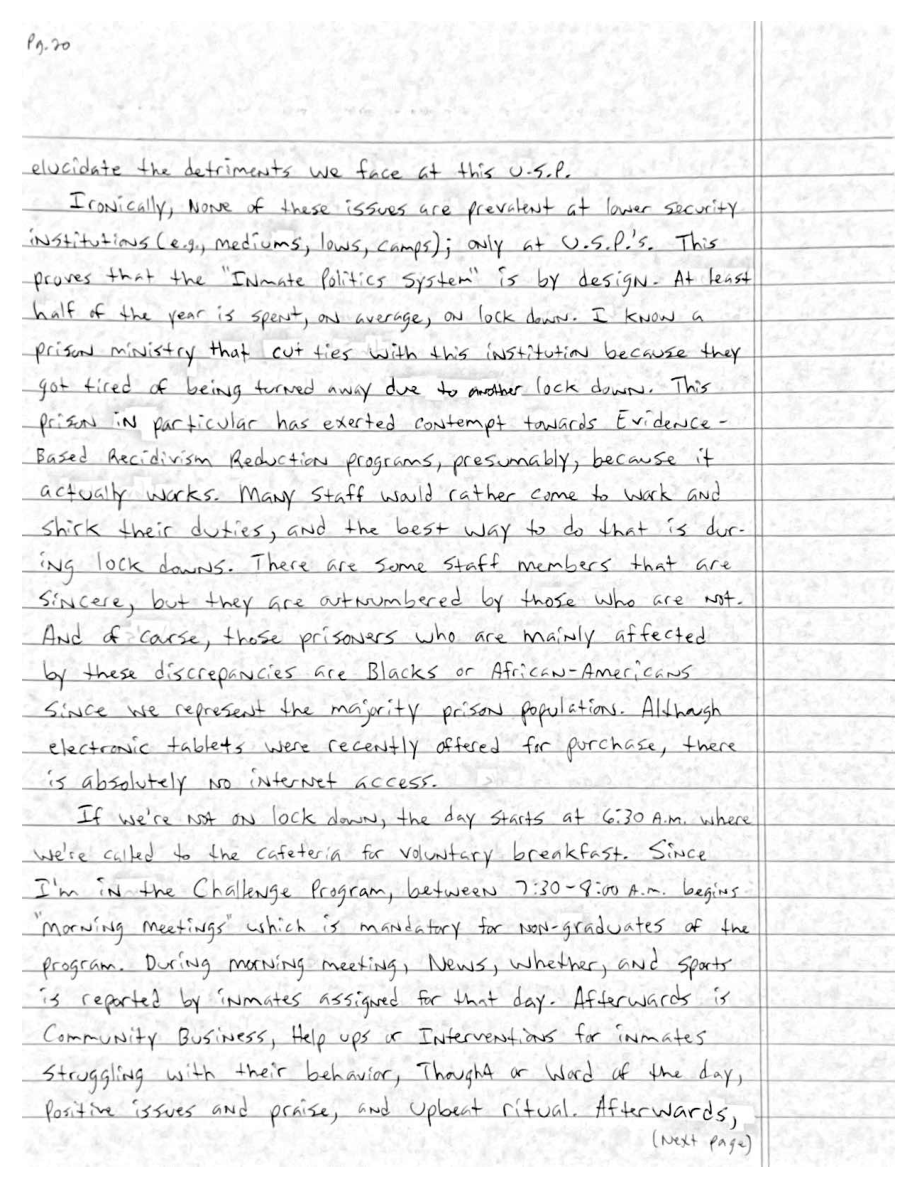 Pg. 20
elucidate the detriments we face at this U.S.P.
Ironically, none of these issues are prevalent at lower security
institutions (e.g., mediums, lows, camps); only at U.S.P.'s. This
proves that the "Inmate Politics System" is by design. At least
half of the year is spent, on average, on lock down. I know a
prison ministry that cut ties with this institution because they
got tired of being turned away due to another lock down. This
prison in particular has exerted contempt towards Evidence-
Based Recidivism Reduction programs, presumably, because it
actually works. Many staff would rather come to work and
shirk their duties, and the best way to do that is dur-
ing lock downs. There are some staff members that are
sincere, but they are outnumbered by those who are not.
And of course, those prisoners who are mainly affected
by these discrepancies are Blacks or African-Americans
since we represent the majority prison population. Although
electronic tablets were recently offered for purchase, there
is absolutely no internet access.
If we're not on lock down, the day starts at 6:30 A.M. where
we're called to the cafeteria for voluntary breakfast. Since
I'm in the Challenge Program, between 7:30-8:00 A.M. begins
"morning meetings" which is mandatory for non-graduates of the
program. During morning meeting, News, Whether, and Sports
is reported by inmates assigned for that day. Afterwards is
Community Business, Help ups or Interventions for inmates
struggling with their behavior, Thought or Word of the day,
Positive issues and praise, and Upbeat ritual. Afterwards,
(Next page)